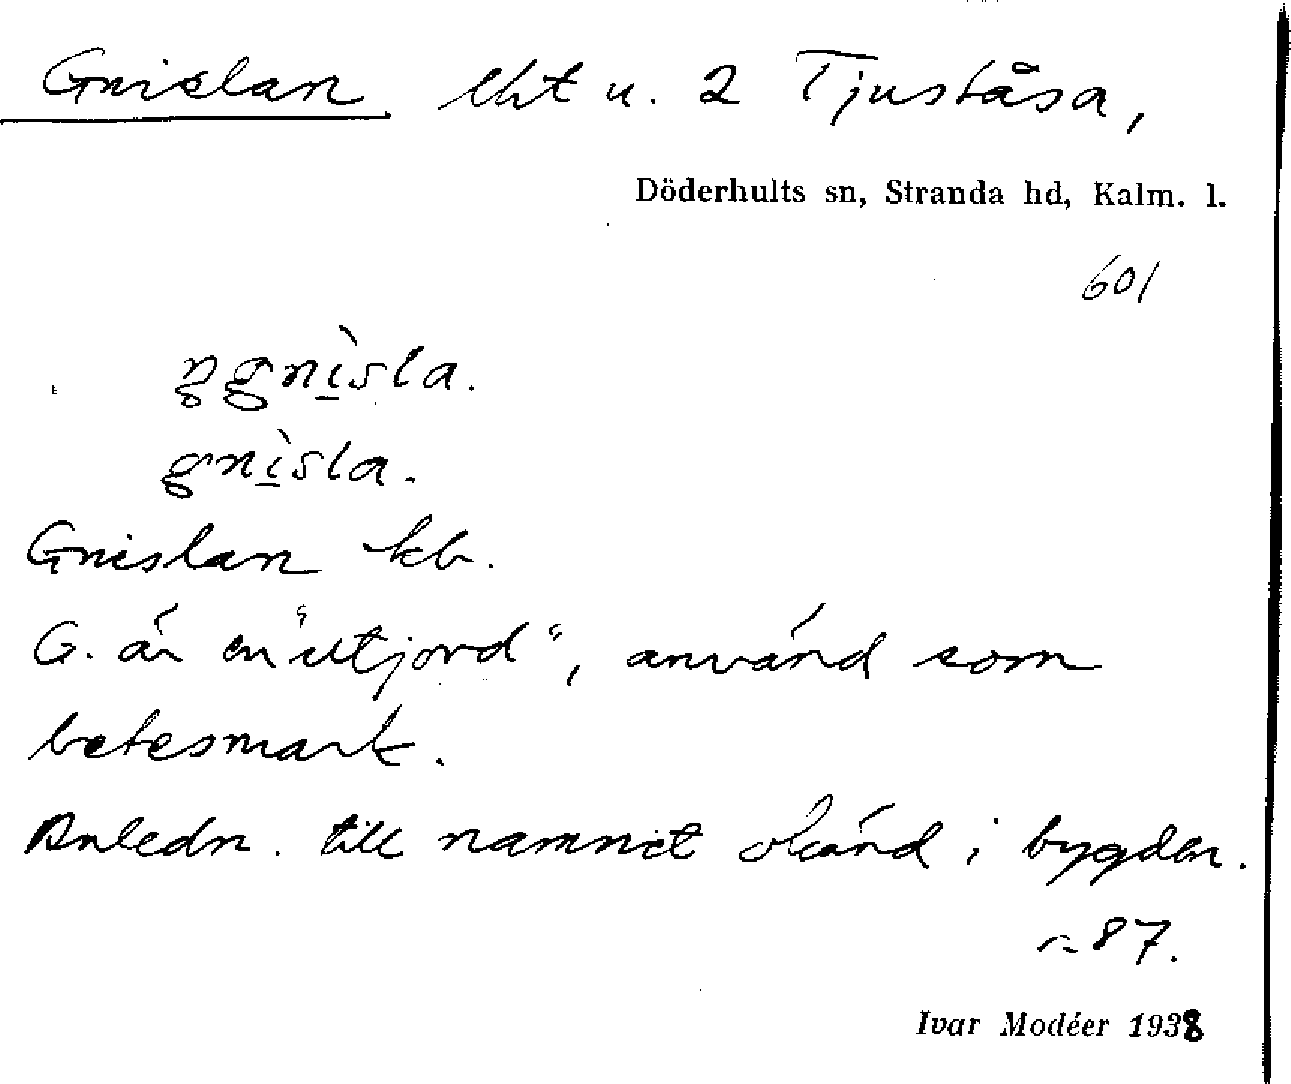 Gnislan lht u. 2 Tjuståsa,
Döderhults sn, Stranda hd, Kalm. l.
601
gnìsla.
gnìsla.
Gnislan kb.
G. är en "utjord", använd som
betesmark.
Anledn. till namnet okänd i bygden.
87.
Ivar Modéer 1938